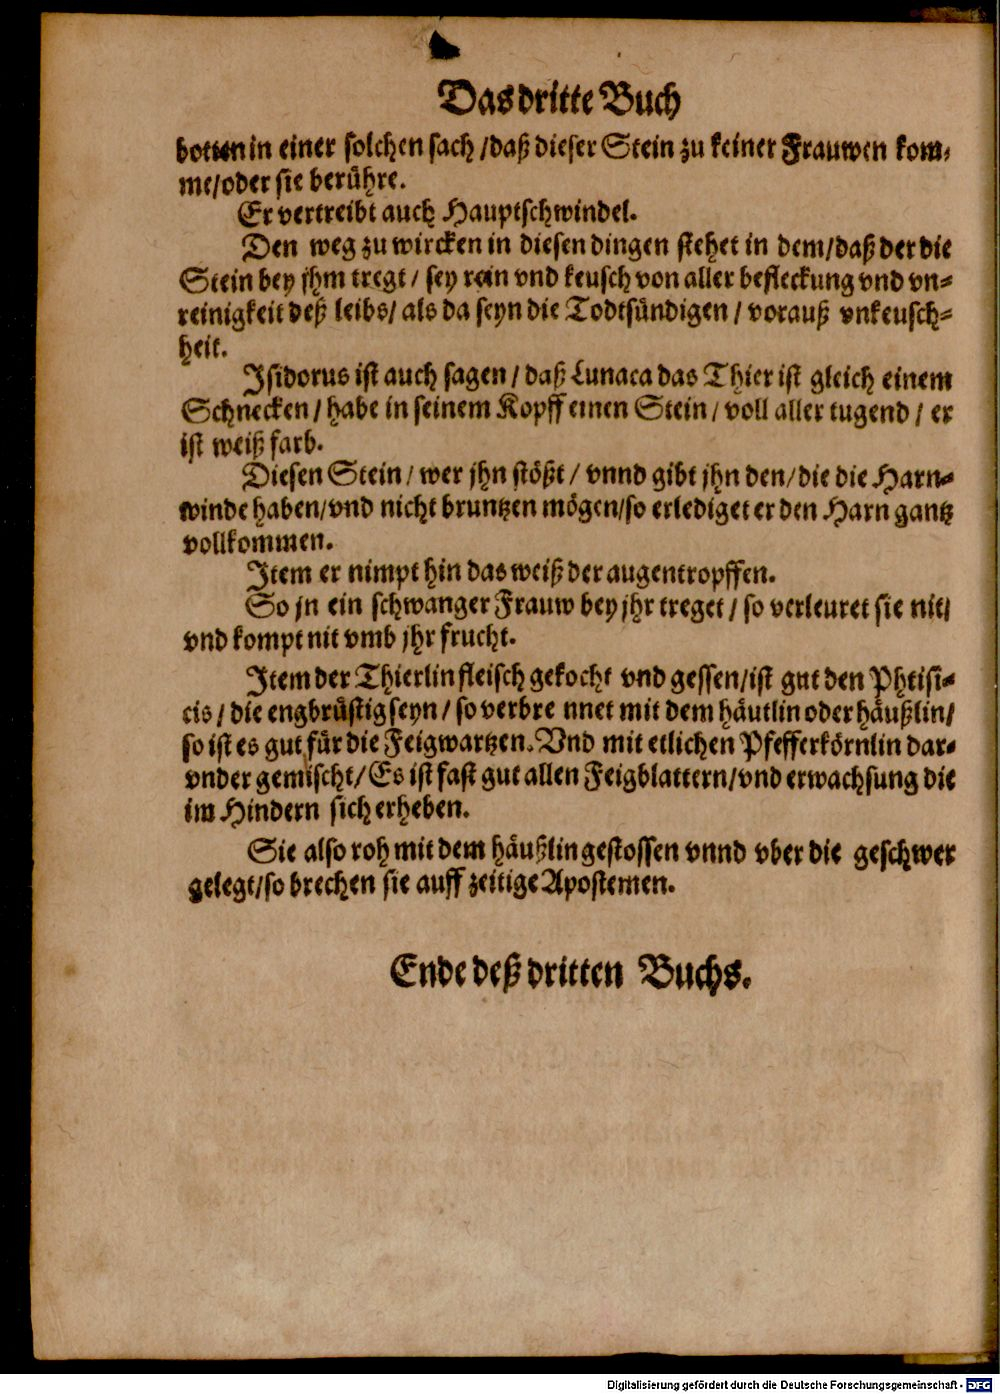 Das dritte Buch
botten in einer solchen sach / daß dieser Stein zu keiner Frauwen kom-
me / oder sie berühre.
Er vertreibt auch Hauptschwindel.
Den weg zu wircken in diesen dingen stehet in dem / daß der die
Stein bey jhm tregt / sey rein vnd keusch von aller befleckung vnd vn-
reinigkeit deß leibs / als da seyn die Todtsündigen / vorauß vnkeusch-
heit.
Isidorus ist auch sagen / daß Lunaca das Thier ist gleich einem
Schnecken / habe in seinem Kopff einen Stein / voll aller tugend / er
ist weiß farb.
Diesen Stein / wer jhn stößt / vnnd gibt jhn den / die die Harn-
winde haben / vnd nicht bruntzen mögen / so erlediget er den Harn gantz
vollkommen.
Item er nimpt hin das weiß der augentropffen.
So jn ein schwanger Frauw bey jhr treget / so verleuret sie nit /
vnd kompt nit vmb jhr frucht.
Item der Thierlin fleisch gekocht vnd gessen / ist gut den Phtisi-
cis / die engbrüstig seyn / so verbre nnet mit dem häutlin oder häußlin /
so ist es gut für die Feigwartzen. Vnd mit etlichen Pfefferkörnlin dar-
vnder gemischt / Es ist fast gut allen Feigblattern / vnd erwachsung die
im Hindern sich erheben.
Sie also roh mit dem häußlin gestossen vnnd vber die geschwer
gelegt / so brechen sie auff zeitige Apostemen.
Ende deß dritten Buchs.
Digitalisierung gefördert durch die Deutsche Forschungsgemeinschaft - DFG